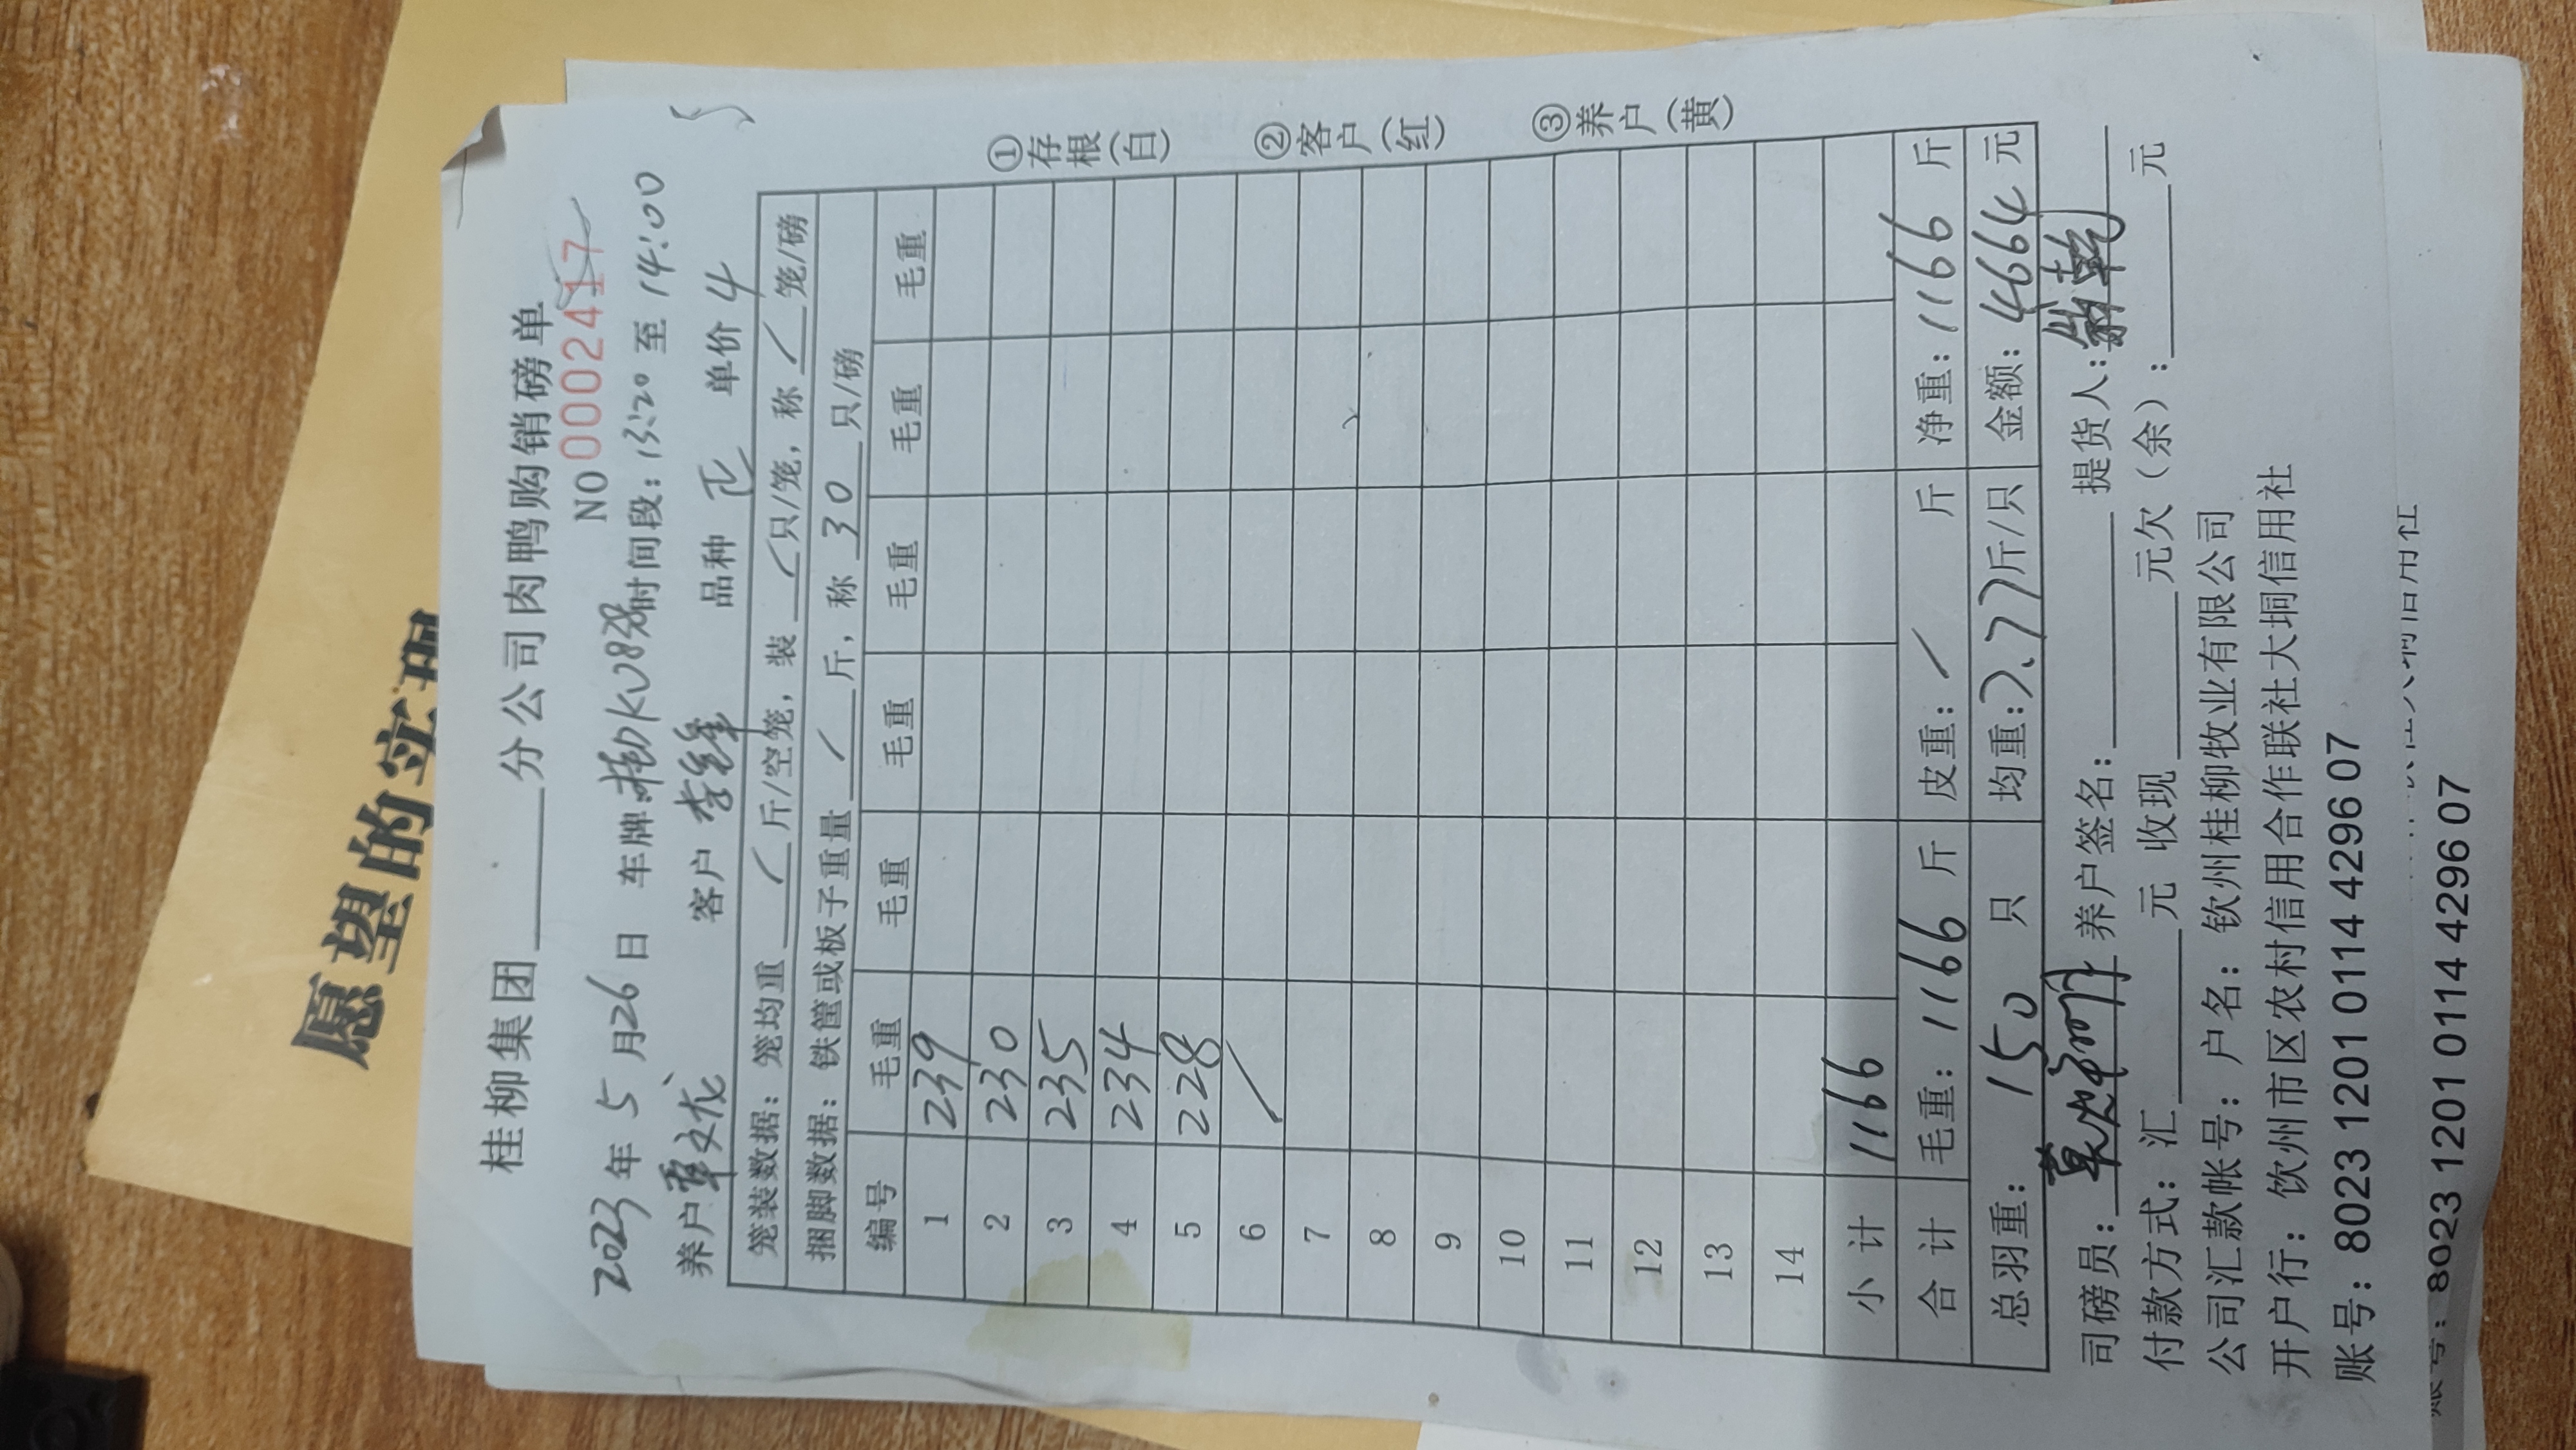 愿望的实现
桂柳集团______分公司肉鸭购销磅单
NO 0002417
2023年5月26日 车牌: 时间段：13:20至14:00
养户 覃文龙 客户 李锋 品种 正 单价 4
笼装数据：笼均重 / 斤/空笼，装 / 只/笼，称 / 笼/磅
捆脚数据：铁筐或板子重量 / 斤，称 30 只/磅
编号 毛重 毛重 毛重 毛重 毛重 毛重
1 239
2 230
3 235
4 234
5 228
6 /
7
8
9
10
11
12
13
14
小计 1166
合计 毛重：1166 斤 皮重：/ 斤 净重：1166 斤
总羽重：150 只 均重：7.77斤/只 金额：4664元
①存根（白）
②客户（红）
③养户（黄）
司磅员： 养户签名：______ 提货人：
付款方式：汇______元 收现______元欠（余）：______元
公司汇款帐号：户名：钦州桂柳牧业有限公司
开户行：钦州市区农村信用合作联社大垌信用社
账号：8023 1201 0114 4296 07
账号：8023 1201 0114 4296 07